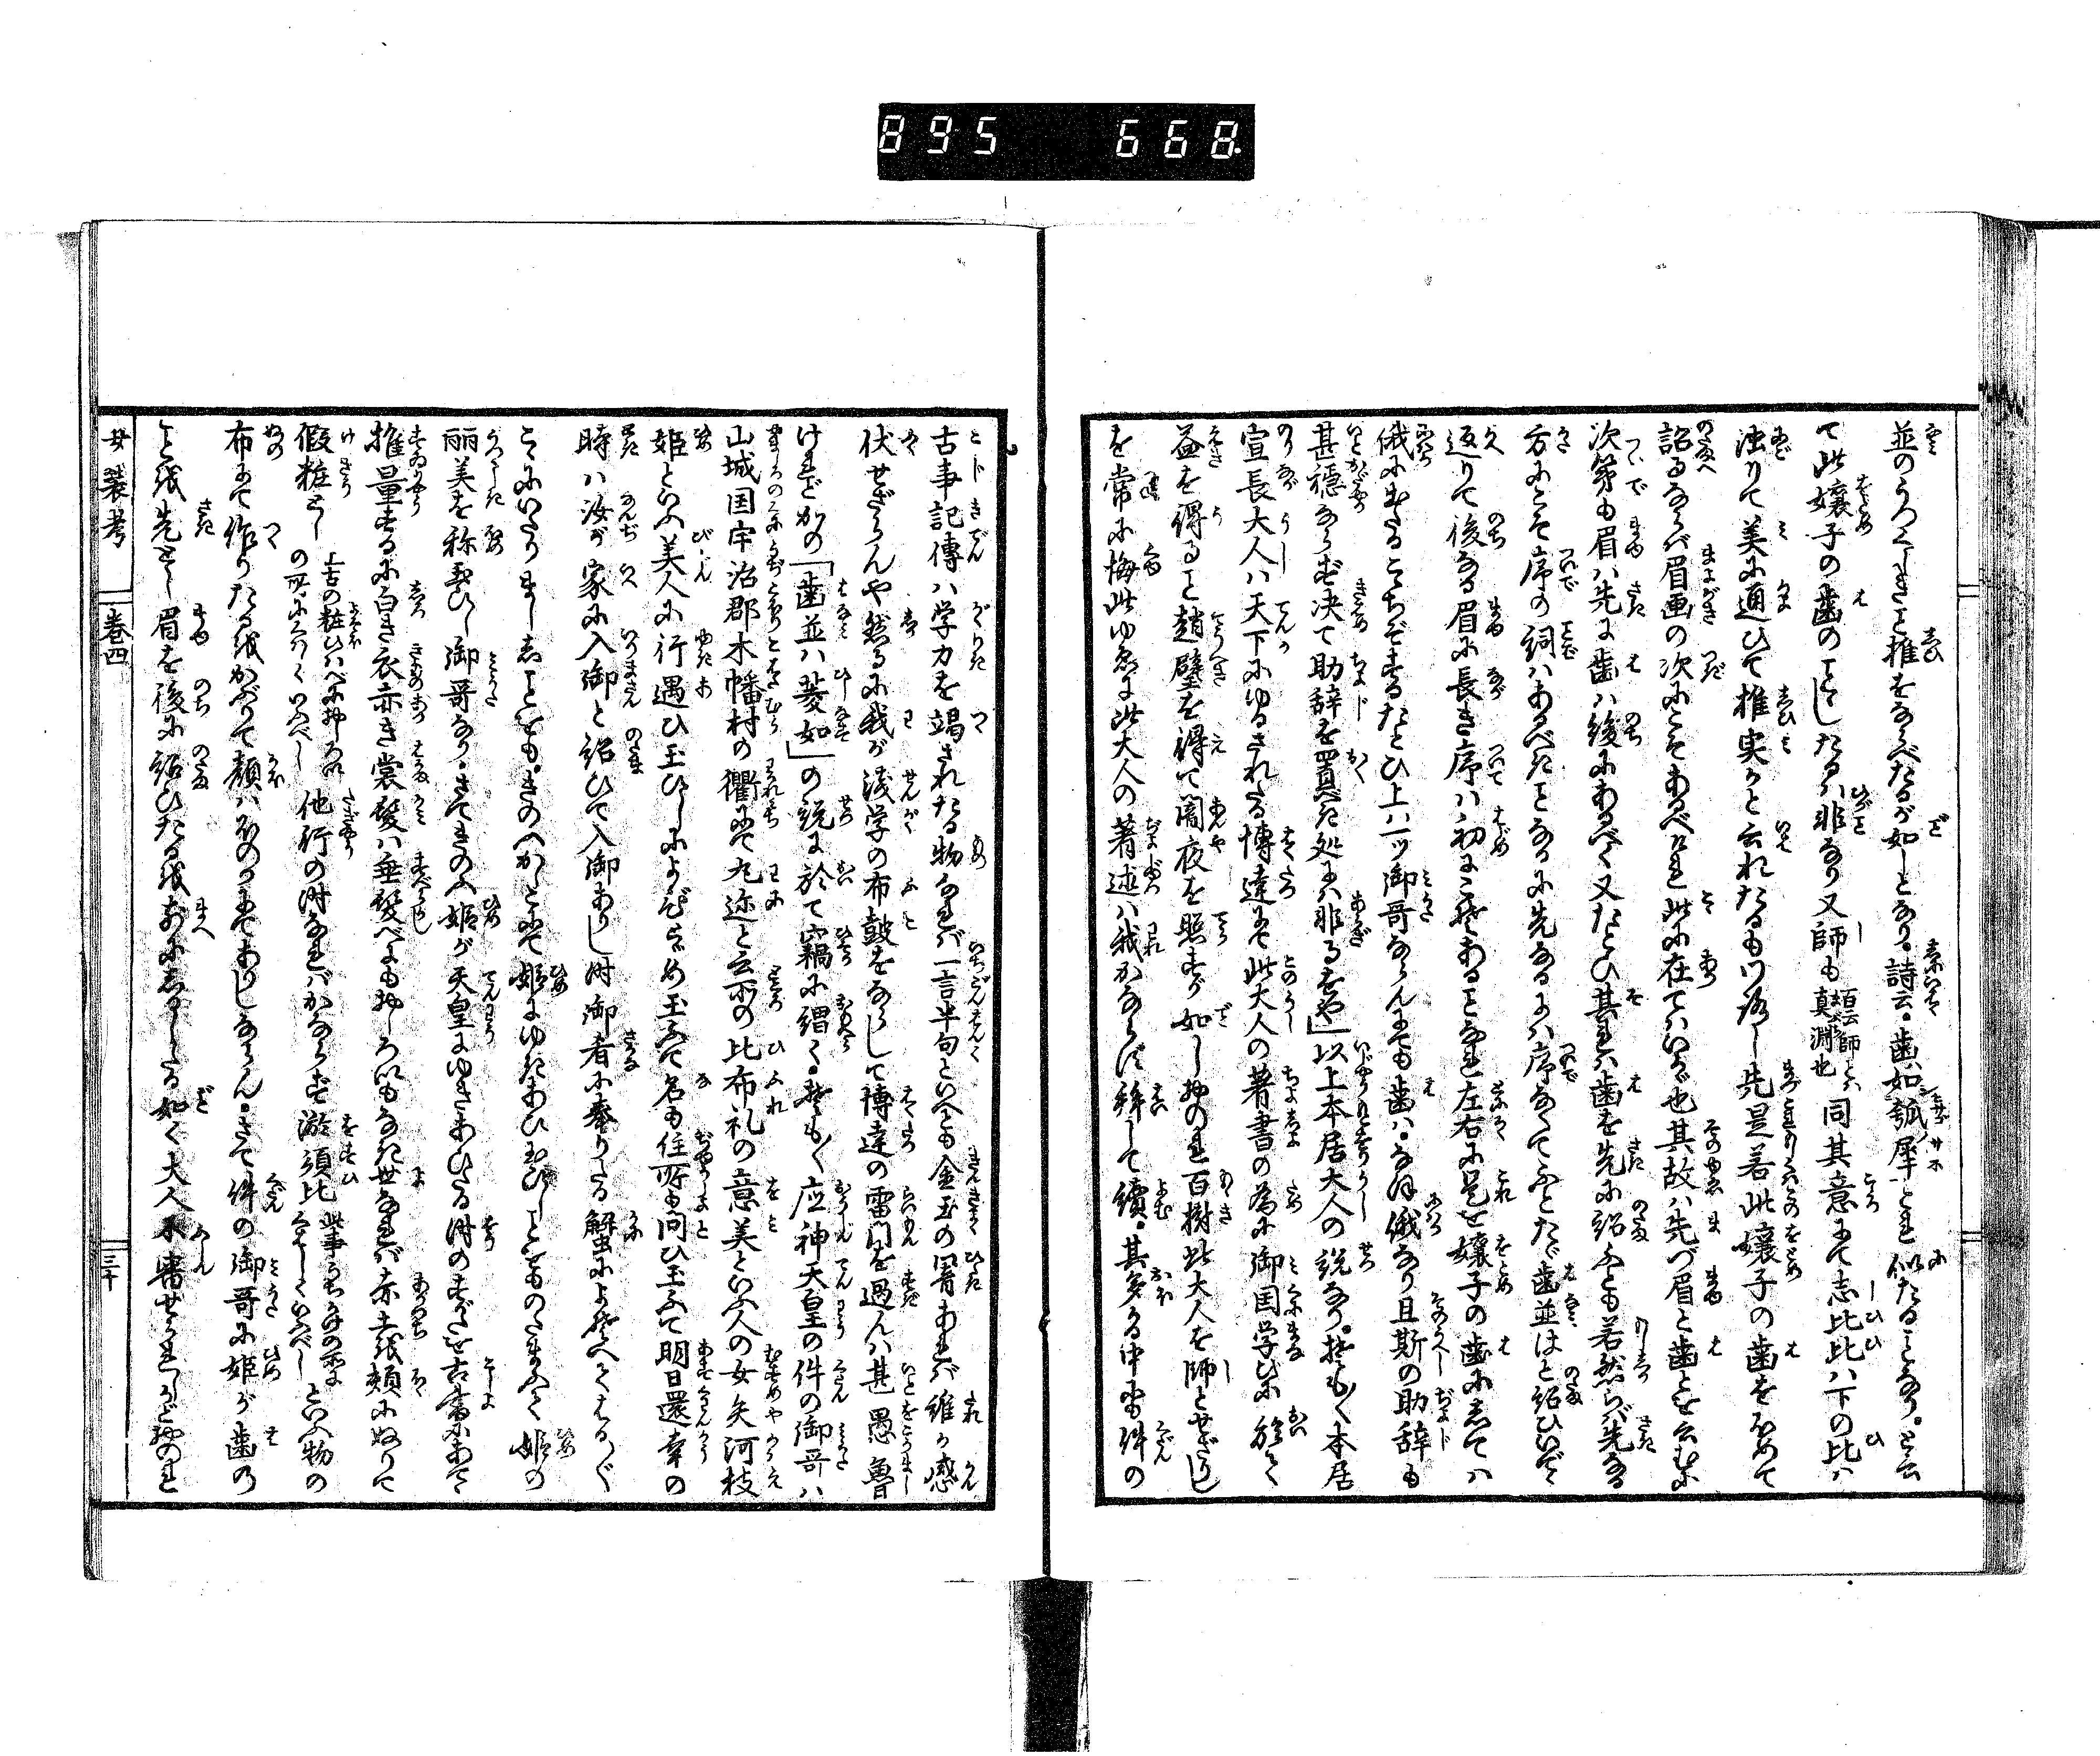 895 668
並のうへしきこと推をならべたるが如しとなり。詩云。歯ハ如瓠犀とこれ似たることなり。と云
て此嬢子の歯のことしたるハ非なり又師も百云師とハ真淵也同其意にて志比比ハ下の比ハ
濁りて美に通ひて推実かと云れたるもつ漏し先是若此嬢子の歯をほめて
詔るならバ眉画の次にこそあるべけれ此に在てハいかゞ也其故ハ先づ眉と歯とを云むに
次第も眉ハ先に歯ハ後にあるべく又たとひ其れハ歯を先に詔ふとも若然らバ先なる
方にこそ序の詞ハあるべきことなるに先なるにハ序なくてふとたゞ歯並はと詔ひいでゝ
返りて後なる眉に長き序ハ初にこそあることなれ左右に是を嬢子の歯にしてハ
俄に出たるこゝちぞするたとひ上ハ一ツ御哥ならんにても歯ハ。なほ俄なり且斯の助辞も
甚穏ならず决て助辞を置べき処にハ非るをや」以上本居大人の説なり。抑も〳〵本居
宣長大人ハ天下にゆるされたる博達にて此大人の著書の為に御国学びに於て
益を得ること趙璧を得て闇夜を照すが如しおのれ百樹此大人を師とせざりし
を常に悔此ゆゑに此大人の著述ハ我かならず拜して讀。其多かる中にも件の
古事記傳ハ学力を竭されたる物なれバ一言半句といへとも金玉の響あれバ誰か感
伏せざらんや然るに我が浅学の布鼓をならして博達の雷門を過んハ甚愚魯
けれどかの「歯並ハ菱如」の説に於て竊に謂く。抑も〳〵応神天皇の件の御哥ハ
山城国宇治郡木幡村の衢にて丸迩と云所の比布礼の意美といふ人の女矢河枝
姫といふ美人に行遇ひ玉ひしによびとゞめ玉ふて名も住所も問ひ玉ふて明日還幸の
時ハ汝が家に入御と詔ひて入御ありし時御肴に奉りたる蟹によそへてはる〴〵
こゝにいたりましゝことをも。きのふかしこにて姫にゆきあひ玉ひしことをものたまふて姫の
丽美を称玉ひし御哥なり。さてきのふ姫が天皇にゆきあひたる時のすがたを古書にあてゝ
推量するに白き衣赤き裳髪ハ垂髪べにもおしろいもなき世なれバ赤土を頬にぬりて
假粧し上古の粧ひハべにおしろいの所にくはしくいふべし他行の時なればかならず淤須比此事うちかけの所にくはしくいふべしといふ物の
布にて作りたるをかぶりて顔ハほのかにてありしならん。さて件の御哥に姫が歯の
ことを先とし眉を後に詔ひたるを前にしるしたる如く大人不審せられつれどおのれ
女装考 巻四 三十